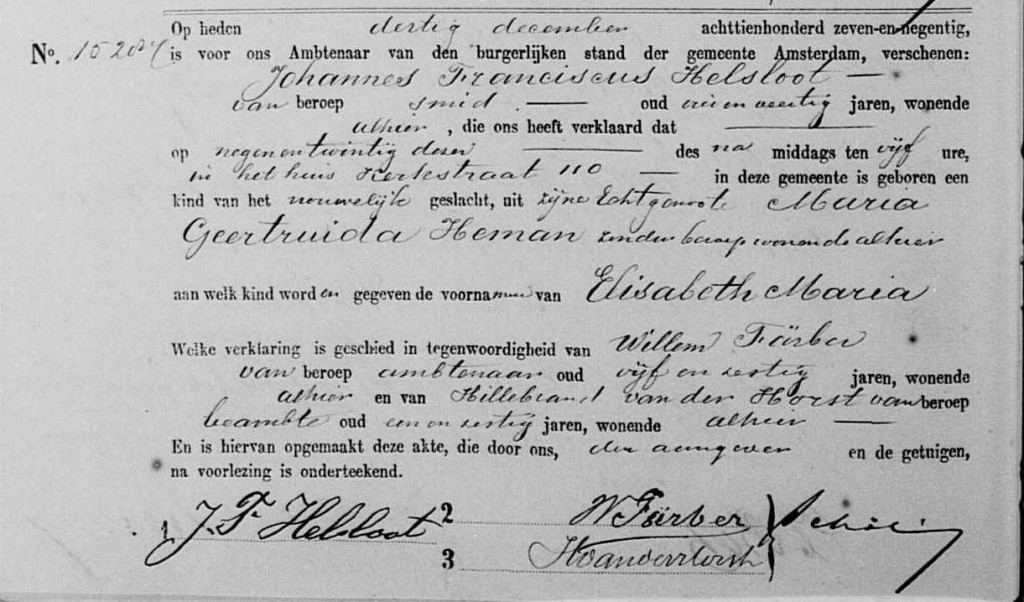 Op heden dertig december achttienhonderd zeven-en-negentig,
No. 15207 is voor ons Ambtenaar van den burgerlijken stand der gemeente Amsterdam, verschenen:
Johannes Franciscus Helsloot
van beroep smid oud en veertig jaren, wonende
alhier, die ons heeft verklaard dat
op negenentwintig dezer des na middags ten vijf ure,
in het huis Kerkstraat 110 in deze gemeente is geboren een
kind van het vrouwelijk geslacht, uit zijne Echtgenoote Maria
Geertruida Heman zonder beroep wonende alhier
aan welk kind worden gegeven de voornamen van Elisabeth Maria
Welke verklaring is geschied in tegenwoordigheid van Willem Färber
van beroep ambtenaar oud vijf en zestig jaren, wonende
alhier en van Hillebrand van der Horst van beroep
beambte oud een en zestig jaren, wonende alhier
En is hiervan opgemaakt deze akte, die door ons, den aangever en de getuigen,
na voorlezing is onderteekend.
1 J. F. Helsloot 2 W Färber
3 HvanderHorst